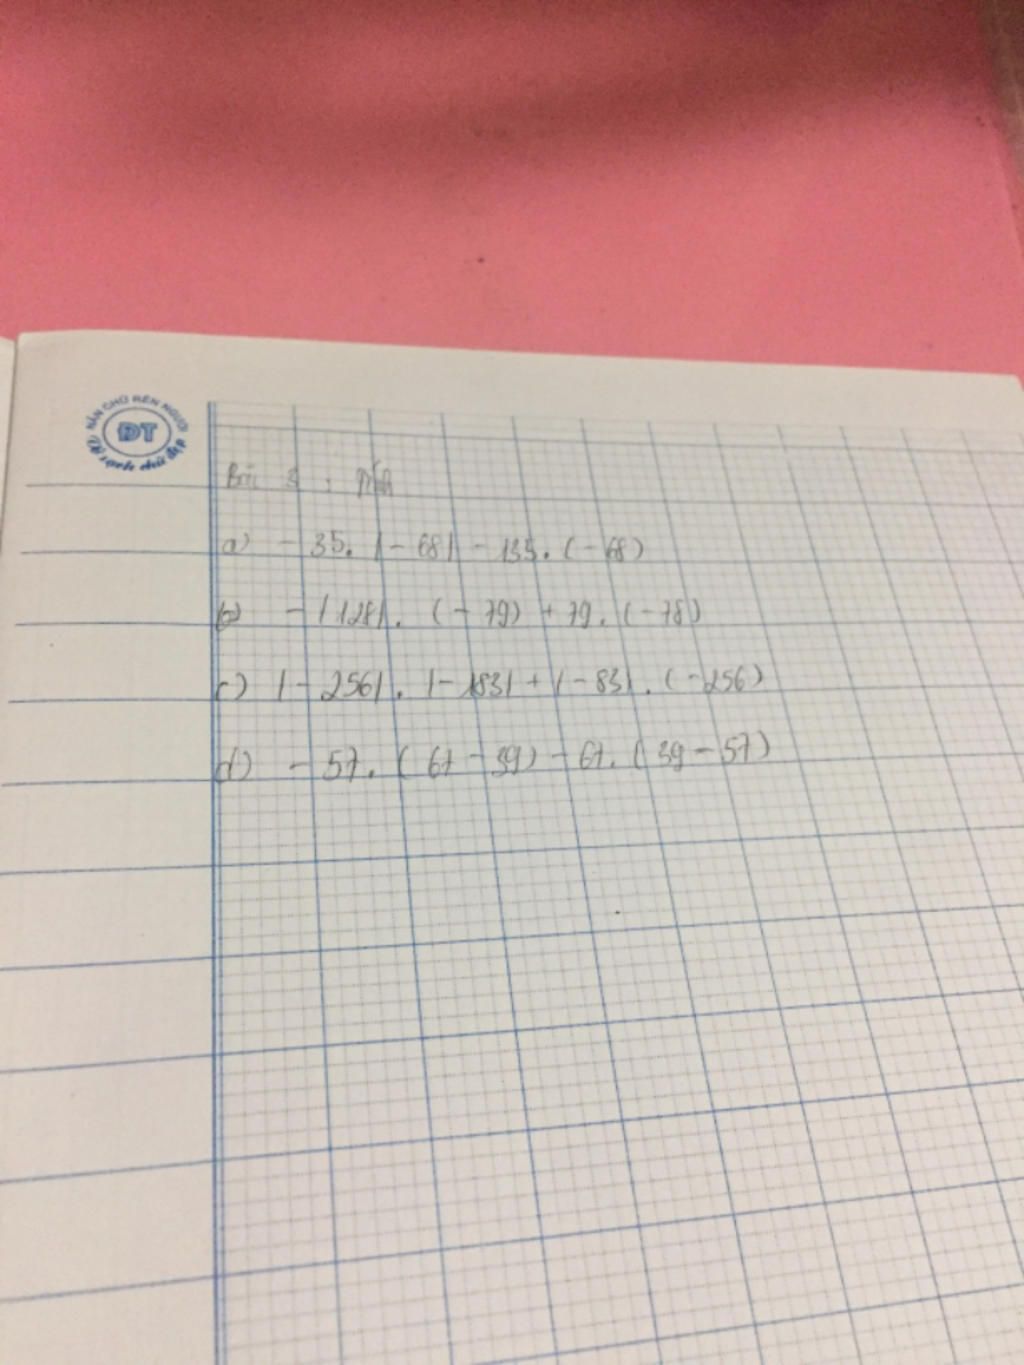 NẮN CHỮ RÈN NGƯỜI
ĐT
Vở sạch chữ đẹp
Bài 3 : Tính
a) - 35. |- 68| - 135. (- 68)
b) - |128|. (- 79) + 79. (- 78)
c) |- 256|. |- 183| + |- 83|. (- 256)
d) - 57. (67 - 39) - 67. (39 - 57)